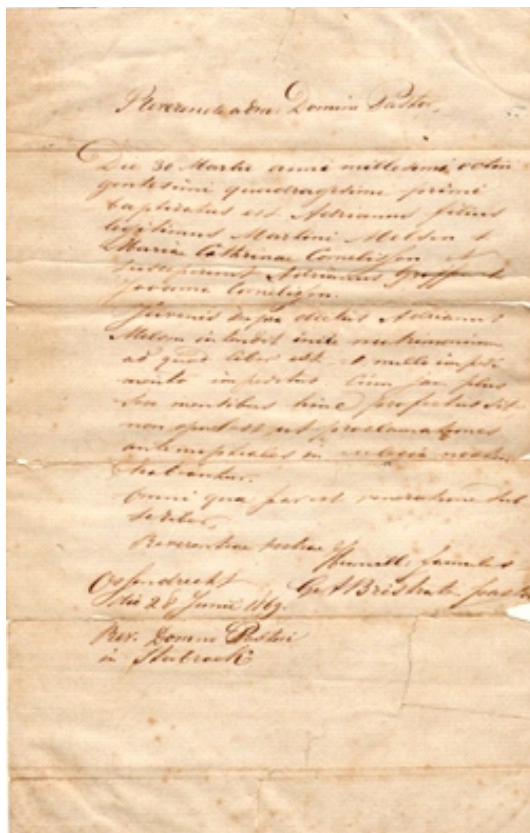 Reverende adm. Domine Pastor,
Die 30 Martii anni millesimi octin
gentesimi quadragesimi primi
baptizatus est Adrianus filius
legitimus Martini Melsen &
Maria Cathrina Cornelisson et
susceperunt Adrianus
Joanna Cornelisson.
Juvenis supra dictus Adrianus
Melsen intendit inire matrimonium
ad quod liber est et nullo impedi
mento impeditus. Cum jam plus
sex mensibus hinc profectus sit
non oportet ut proclamationes
antenuptiales in ecclesia nostra
habeantur.
Omni qua par est veneratione sub
Reverentiae vestrae
Humill. famulus
Ossendrecht
pastor
Die 28 Junii 1869.
Rev. Domino Pastori
in Starbroek